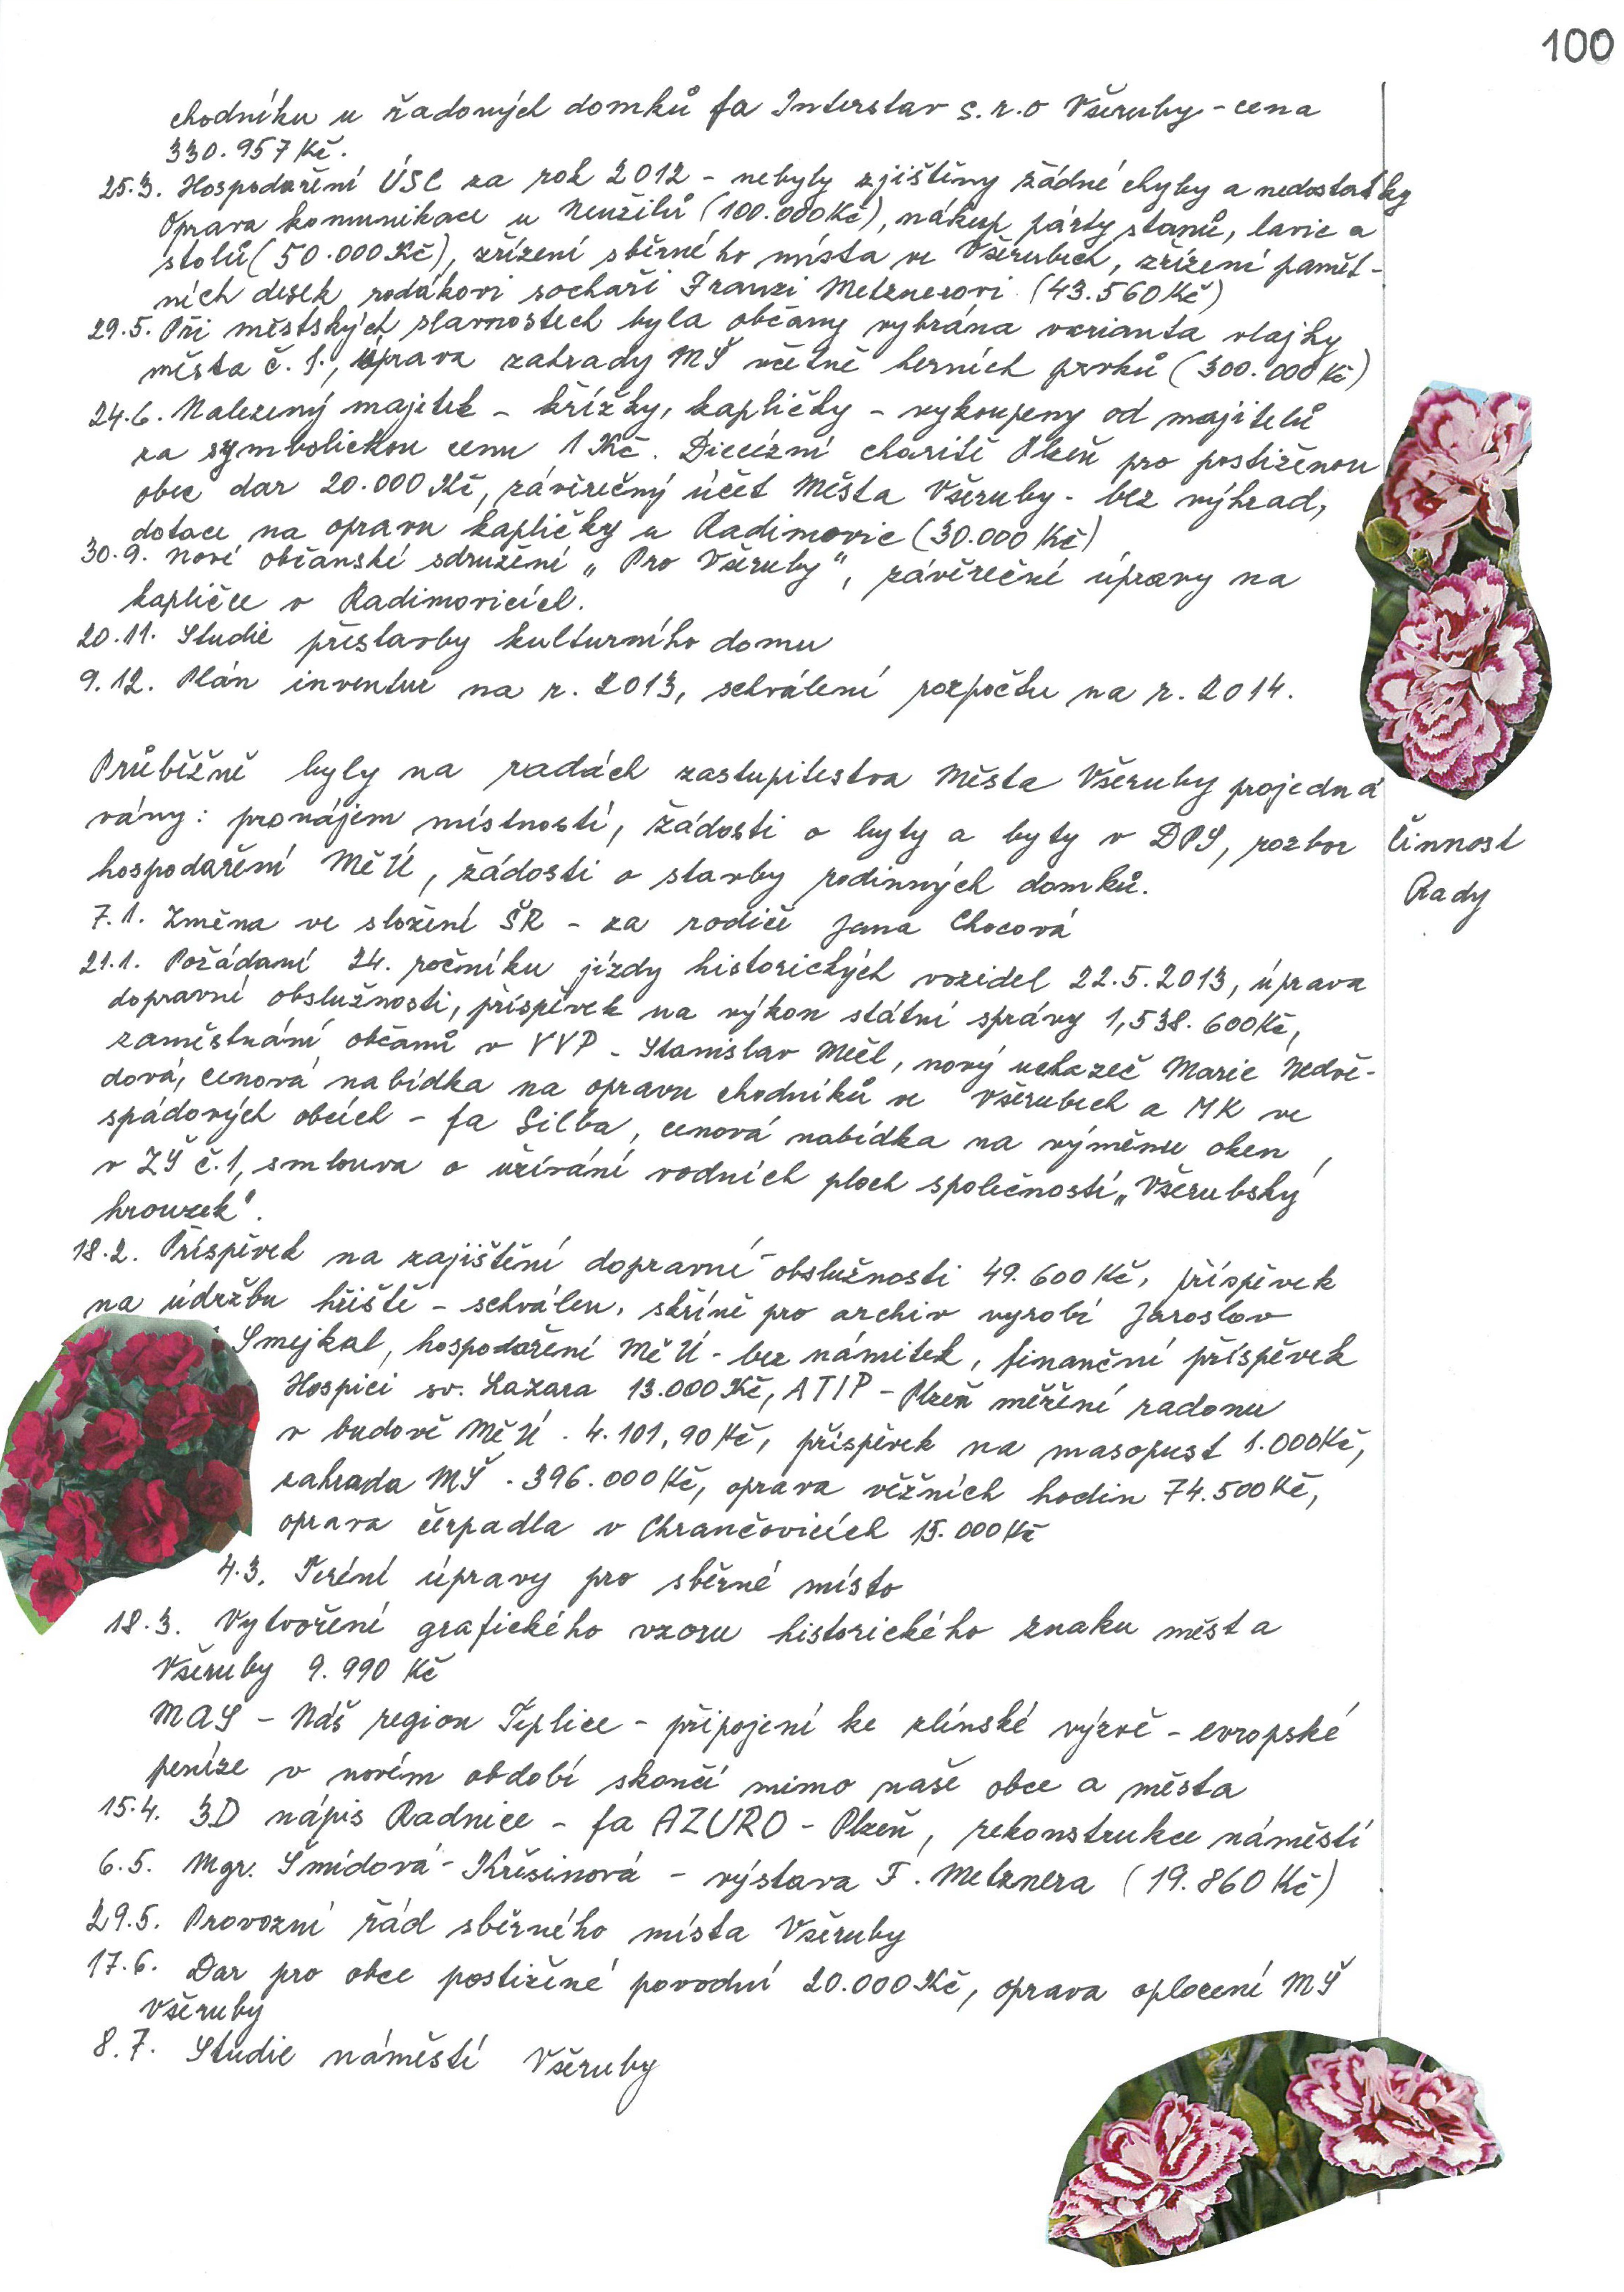 100
chodníku u řadových domků fa Interstav s.r.o Všeruby - cena
330.957 Kč.
25.3. Hospodaření ÚSC za rok 2012 - nebyly zjištěny žádné chyby a nedostatky
Oprava komunikace u Neužilů (100.000 Kč), nákup párty stanů, lavic a
stolů (50.000 Kč), zřízení sběrného místa ve Všerubech, zřízení pamět-
ních desek rodákovi sochaři Franzi Metznerovi (43.560 Kč)
29.5. Při městských slavnostech byla občany vybrána varianta vlajky
města č. 1., úprava zahrady MŠ včetně herních prvků (300.000 Kč)
24.6. Nalezený majitek - křížky, kapličky - vykoupeny od majitelů
za symbolickou cenu 1 Kč. Diecézní charitě Plzeň pro postiženou
obec dar 20.000 Kč, závěrečný účet Města Všeruby - bez výhrad,
dotace na opravu kapličky u Radimovic (30.000 Kč)
30.9. Nové občanské sdružení „Pro Všeruby", závěrečné úpravy na
kapličce v Radimovicích.
20.11. Studie přístavby kulturního domu
9.12. Plán inventur na r. 2013, schválení rozpočtu na r. 2014.
Průběžně byly na radách zastupitestva Města Všeruby projedná
vány: pronájem místností, žádosti o byty a byty v DPS, rozbor
hospodaření MěÚ, žádosti o stavby rodinných domků.
Činnost
Rady
7.1. Změna ve složení ŠR - za rodiče Jana Chocová
21.1. Pořádaní 24. ročníku jízdy historických vozidel 22.5.2013, úprava
dopravní obslužnosti, příspěvek na výkon státní správy 1,538.600 Kč,
zaměstnání občanů v VVP - Stanislav Mečl, nový uchazeč Marie Nedvě-
dová, cenová nabídka na opravu chodníků ve Všerubech a MK ve
spádových obcích - fa Silba, cenová nabídka na výměnu oken
v ZŠ č.1, smlouva o užívání vodních ploch společností „Všerubský
hrouzek".
18.2. Příspěvek na zajištění dopravní obslužnosti 49.600 Kč, příspěvek
na údržbu hřiště - schválen, skříně pro archiv vyrobí Jaroslav
Smejkal, hospodaření MěÚ - bez námitek, finanční příspěvek
Hospici sv. Lazara 13.000 Kč, ATIP - Plzeň měření radonu
v budově MěÚ - 4.101,90 Kč, příspěvek na masopust 1.000 Kč,
zahrada MŠ - 396.000 Kč, oprava věžních hodin 74.500 Kč,
oprava čerpadla v Chrančovicích 15.000 Kč
4.3. Teréní úpravy pro sběrné místo
18.3. Vytvoření grafického vzoru historického znaku města
Všeruby 9.990 Kč
MAS - Náš region Teplice - připojení ke zlínské výzvě - evropské
peníze v novém období skončí mimo naše obce a města
15.4. 3D nápis Radnice - fa AZURO - Plzeň, rekonstrukce náměstí
6.5. Mgr. Šmídová - Křesinová - výstava F. Metznera (19.860 Kč)
29.5. Provozní řád sběrného místa Všeruby
17.6. Dar pro obce postižené povodní 20.000 Kč, oprava oplocení MŠ
Všeruby
8.7. Studie náměstí Všeruby